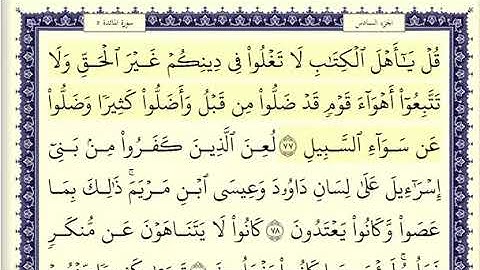 الجزء السادس
سورة المائدة ٥
قُلۡ يَـٰٓأَهۡلَ ٱلۡكِتَـٰبِ لَا تَغۡلُواْ فِى دِينِكُمۡ غَيۡرَ ٱلۡحَقِّ وَلَا
تَتَّبِعُوٓاْ أَهۡوَآءَ قَوۡمٍ قَدۡ ضَلُّواْ مِن قَبۡلُ وَأَضَلُّواْ كَثِيرًا وَضَلُّواْ
عَن سَوَآءِ ٱلسَّبِيلِ ٧٧ لُعِنَ ٱلَّذِينَ كَفَرُواْ مِنۢ بَنِىٓ
إِسۡرَٰٓءِيلَ عَلَىٰ لِسَانِ دَاوُۥدَ وَعِيسَى ٱبۡنِ مَرۡيَمَۚ ذَٰلِكَ بِمَا
عَصَواْ وَّكَانُواْ يَعۡتَدُونَ ٧٨ كَانُواْ لَا يَتَنَاهَوۡنَ عَن مُّنكَرٍ